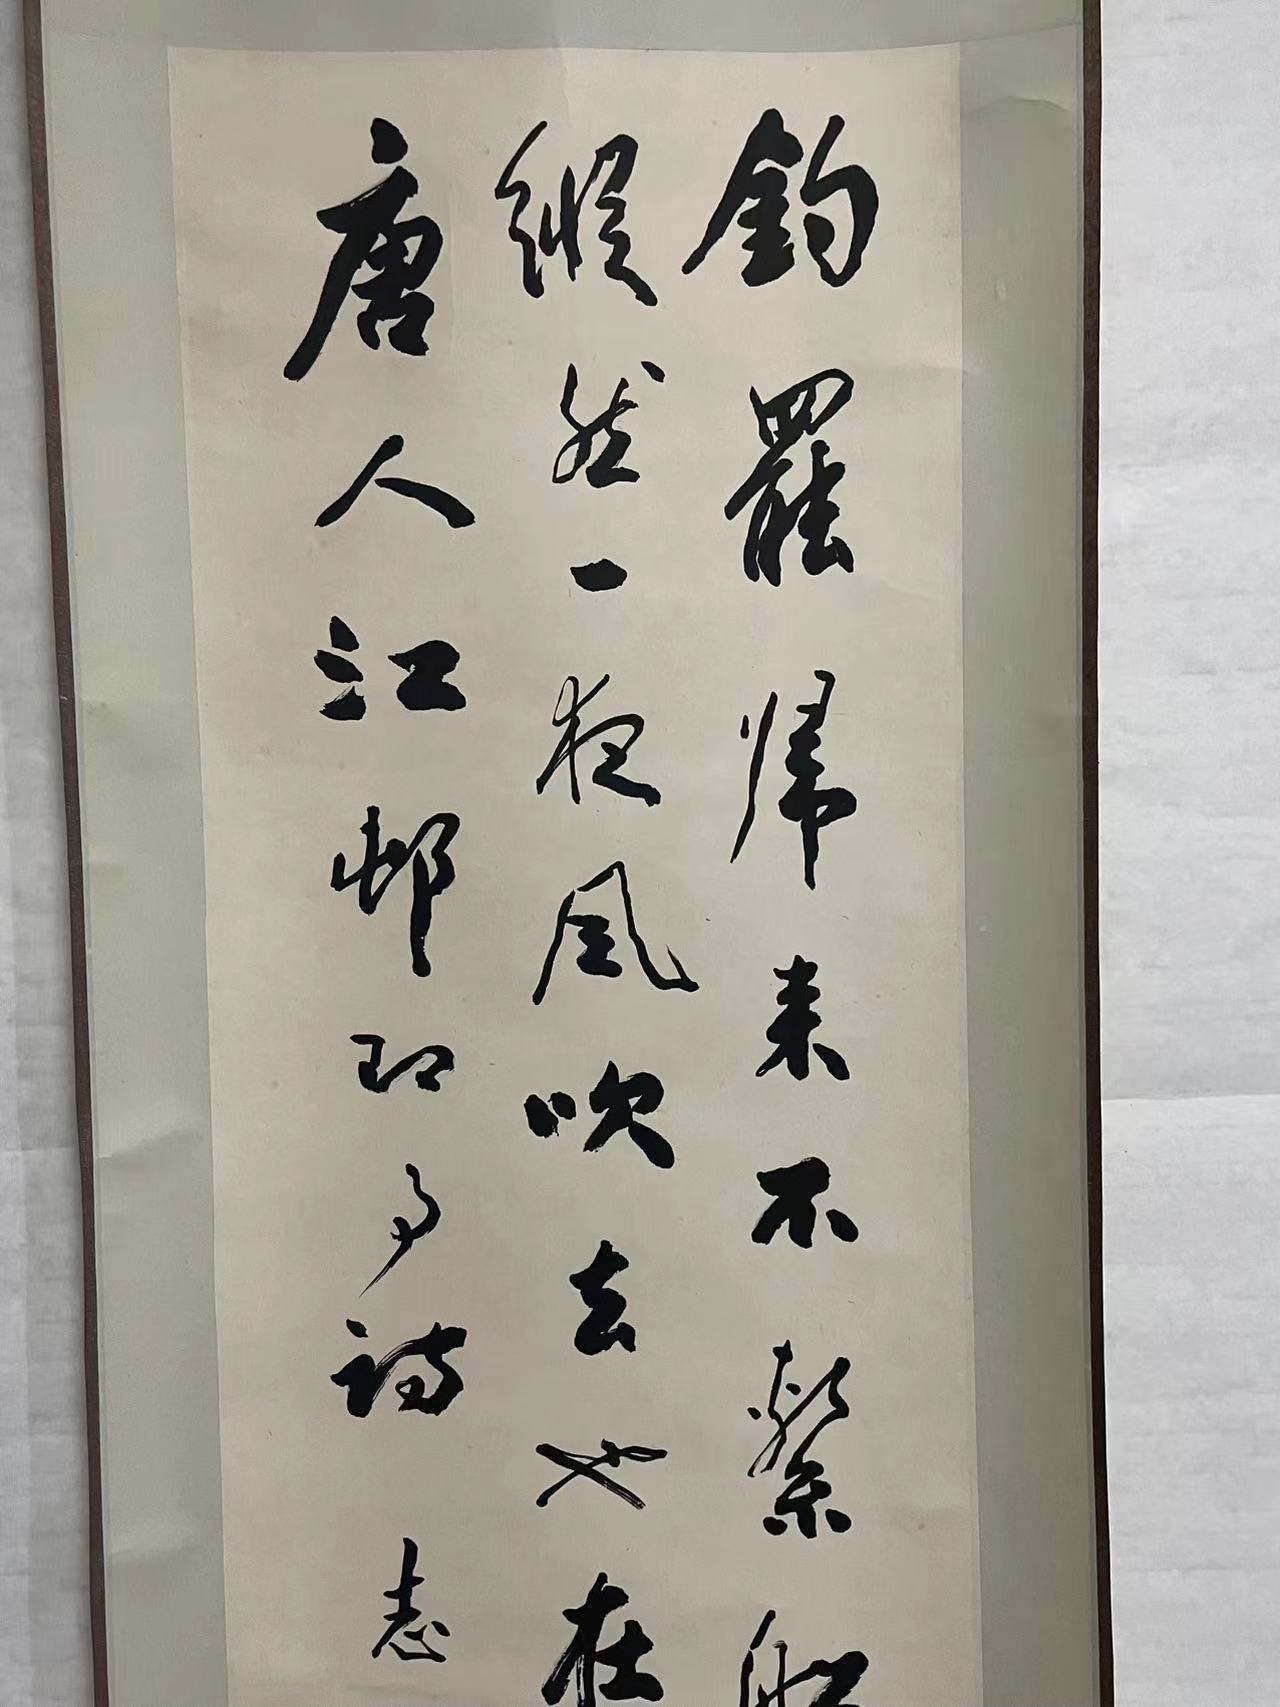 釣罷歸來不繫船
縱然一夜風吹去只在
唐人江邨即事詩 志